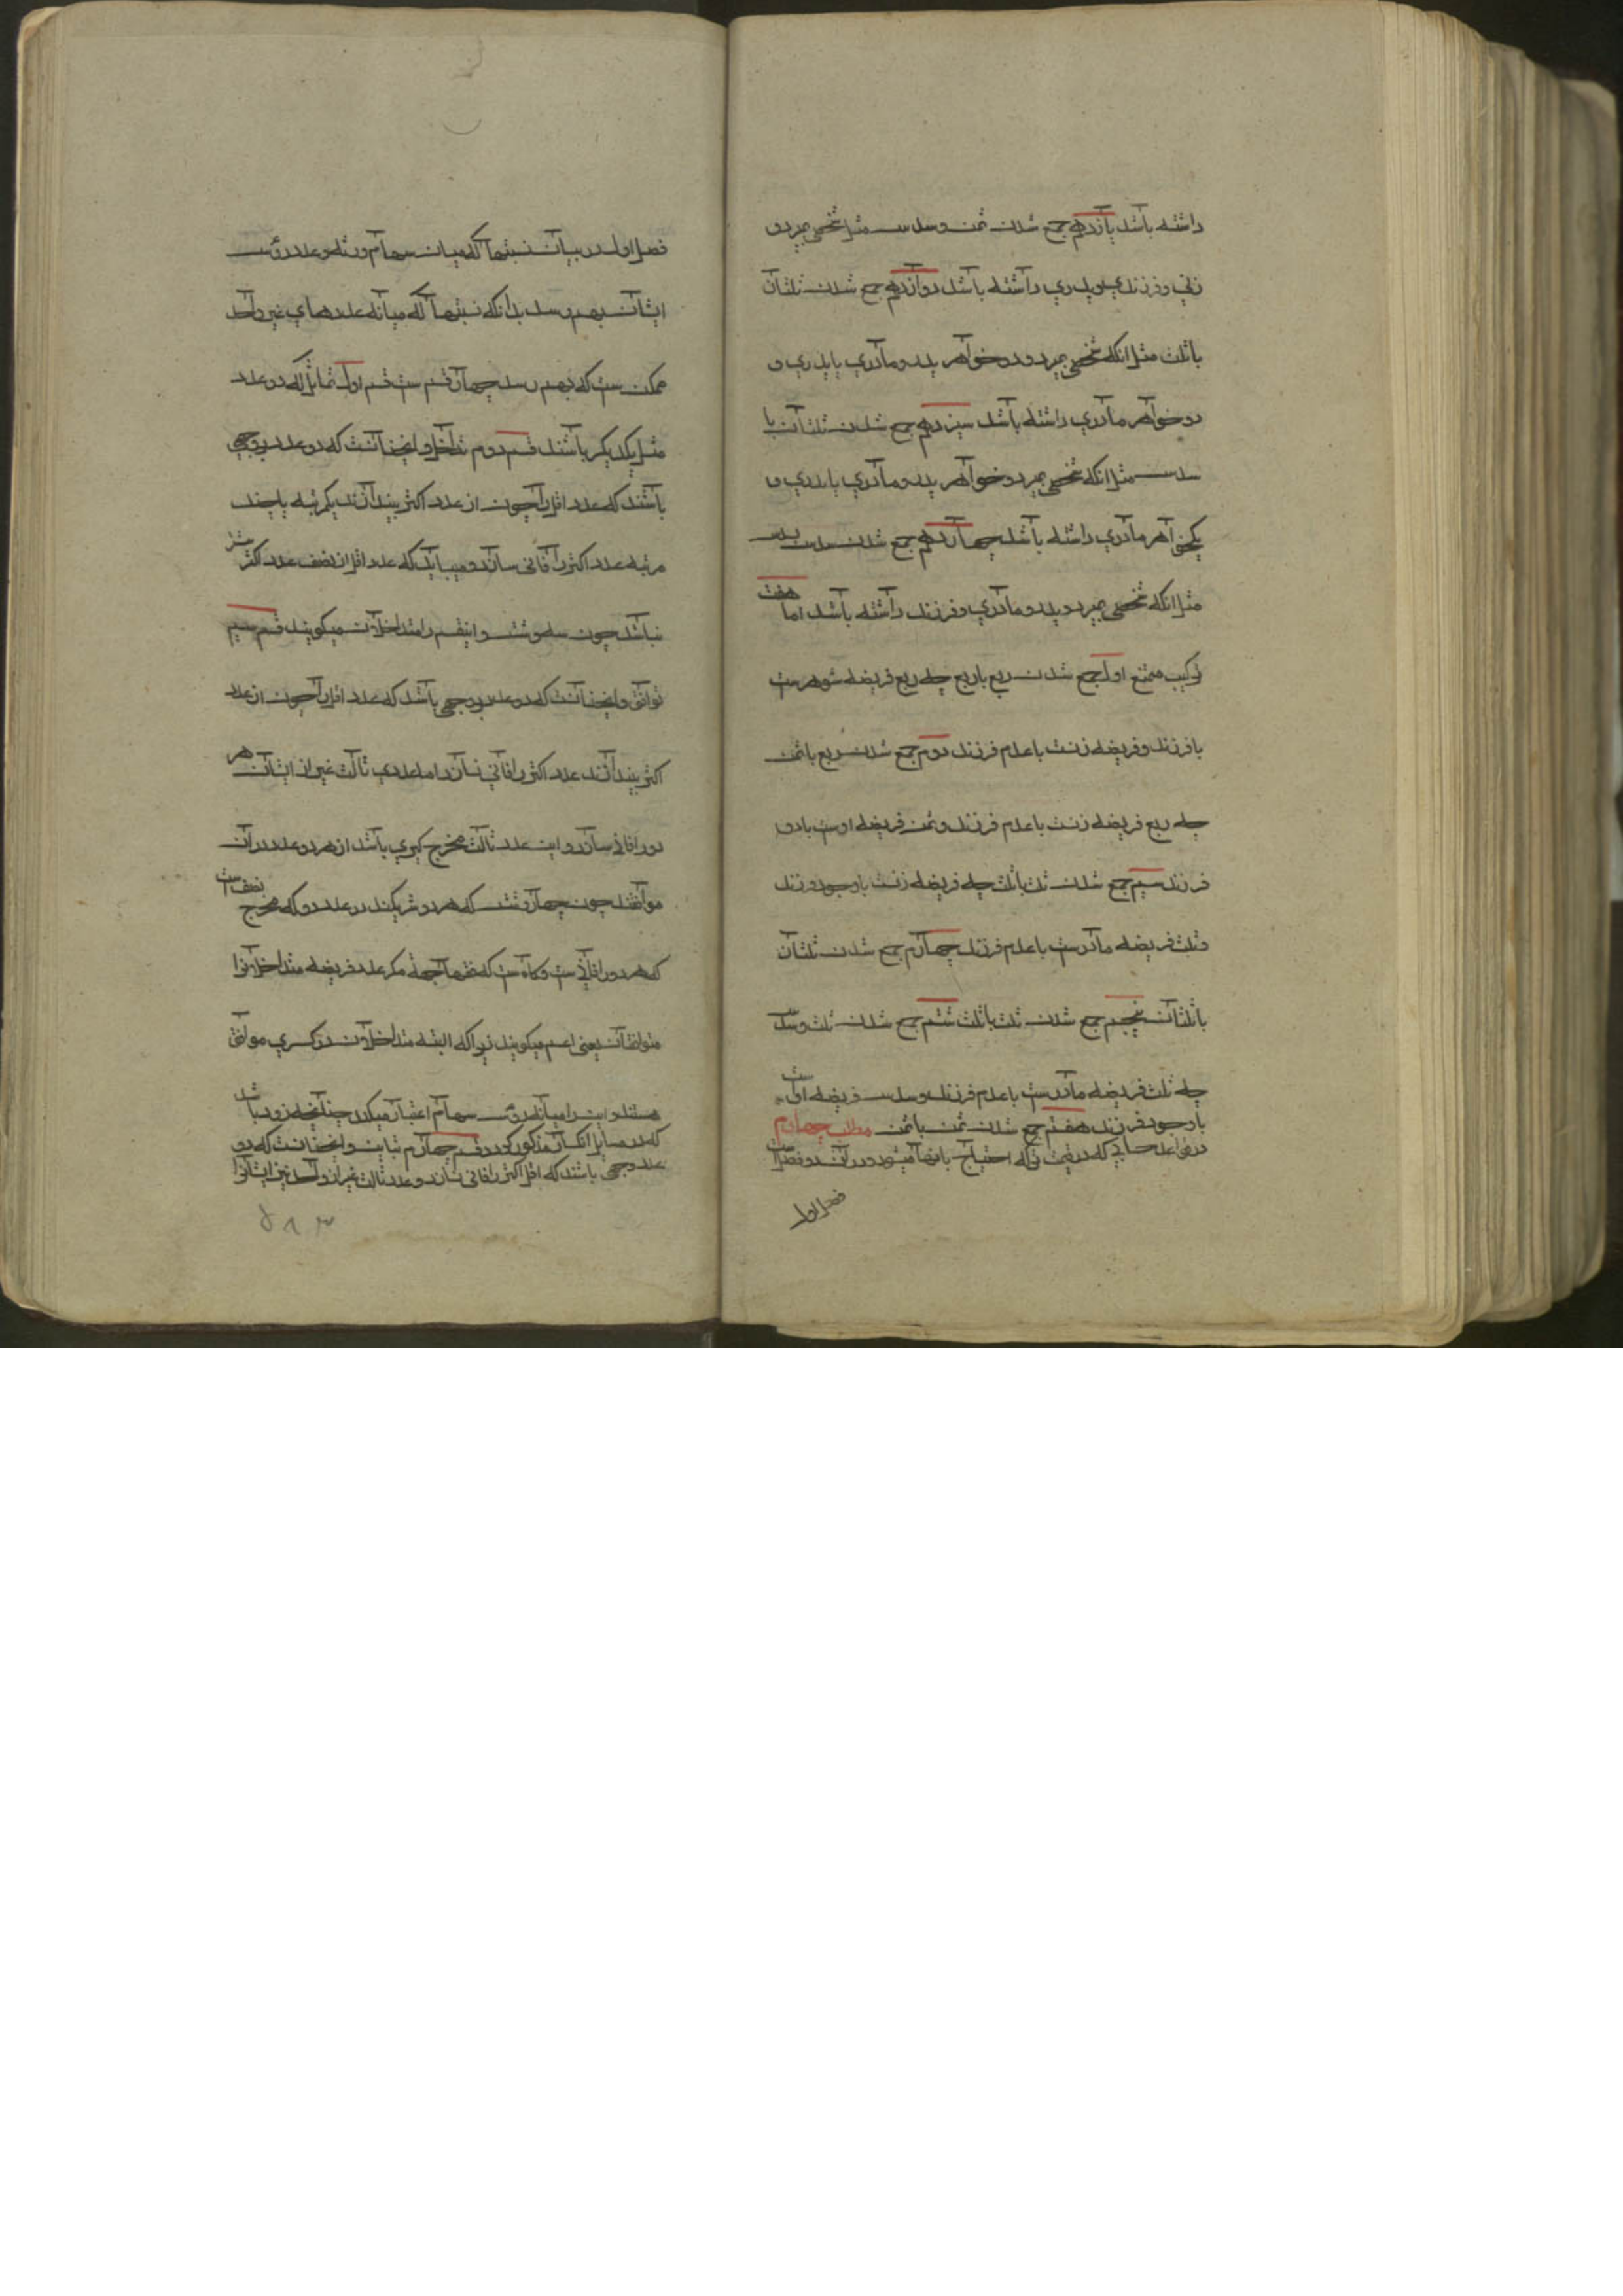 داشته باشد یازدهم جمع شدن ثمن و سدس مثل شخصی بمیرد و
زنی و فرزندی و پدری داشته باشد دوازدهم جمع شدن ثلثان
با ثلث مثل انکه شخصی بمیرد و دو خواهر پدر و مادری یا پدری و
دو خواهر مادری داشته باشد سیزدهم جمع شدن ثلثان با
سدس مثل انکه شخصی بمیرد دو خواهر پدر و مادری یا پدری و
یکخواهر مادری داشته باشد چهاردهم جمع شدن سدس بسدس
مثل انکه شخصی بمیرد و پدر و مادری و فرزند داشته باشد اما هفت
ترکیب ممتنع اول جمع شدن ربع با ربع چه ربع فریضه شوهرست
با فرزند و فریضه زنست با عدم فرزند دوم جمع شدن ربع با ثمن
چه ربع فریضه زنست با عدم فرزند و ثمن فریضه اوست با دو
فرزند سیم جمع شدن ثمن با ثلث چه فریضه زنست با وجود فرزند
و ثلث فریضه مادرست با عدم فرزند چهارم جمع شدن ثلثان
با ثلثان پنجم جمع شدن ثلث با ثلث ششم جمع شدن ثلث و سدس
چه ثلث فریضه مادرست با عدم فرزند و سدس فریضه اوست
با وجود فرزند هفتم جمع شدن ثمن با ثمن مطلب چهارم
در قواعد حسابی که در قسمت ترکه احتیاج بانها میشود و در آن دو فصل است
فصل اول
فصل اول در بیان نسبتها که میان سهام ورثه و عدد رؤس
ایشان بهم رسد بدانکه نسبتها که میانه عددهای غیر واحد
ممکن ست که بهم رسد چهار قسم ست قسم اول تماثل که دو عدد
مثل یکدیگر باشند قسم دوم تداخل و اینچنانست که دو عدد بروجهی
باشند که عدد اقل را چون از عدد اکثر بیندازند یکمرتبه یا چند
مرتبه عدد اکثر را فانی سازد و میباید که عدد اقل از نصف عدد اکثر بیشتر
نباشد چون سه و شش و اینقسم را متداخلان میگویند قسم سیم
توافق و اینچنانست که دو عدد بروجهی باشد که عدد اقل را چون از عدد
اکثر بیندازند عدد اکثر را فانی نسازد اما عددی ثالث غیر از ایشان هر
دو را فانی سازد و این عدد ثالث مخرج کسری باشد از هر دو عدد در آن
موافقند چون چهار و شش که هر دو شریکند در عدد دو که مخرج نصف است
که هر دو را فانی ست و گاه ست که فقها جمله مکرر عدد فریضه متداخلانرا
متوافقان بمعنی اعم میگویند زیرا که البته متداخلان در کسری موافق
هستند و این را میانه رؤس و سهام اعتبار میکنند چنانچه زود باشد
که در مسایل انکسار مذکور گردد قسم چهارم تباین و اینچنانست که دو
عدد وجهی باشند که اقل اکثر را فانی نسازد و عدد ثالث غیر از واحد نیز ایشانرا